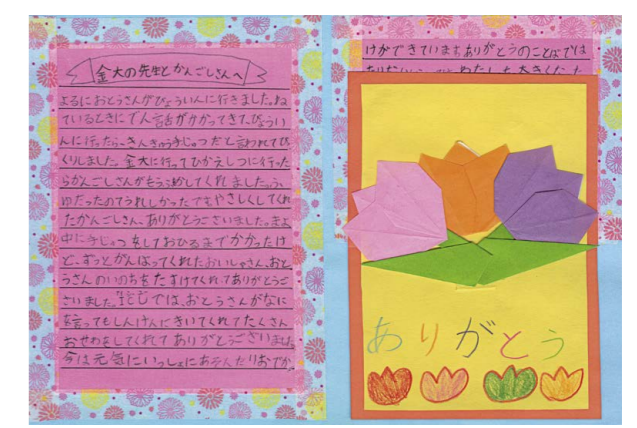 金大の先生とかんごしさんへ
よるにおとうさんがびょういんに行きました。ね
ているときにでん話がかかってきて、びょうい
んに行ったら、きんきゅう手じゅつだと言われてび
くりしました。金大に行ってひかえしつに行った
らかんごしさんがもうふかしてくれました。ふ
ゆだったのでうれしかったですやさしくしてくれ
たかんごしさん、ありがとうございました。まよ
中に手じゅつをしておひるまでかかったけ
ど、ずっとがんばってくれたおいしゃさん、おと
うさんのいのちをたすけてくれてありがとうご
ざいました。では、おとうさんがなに
を言ってもしんけんにきいてくれてたくさん
おせわをしてくれてありがとうございました。
今は元気にいっしょにあそんだりおでか
けができています。ありがとうのことばでは
わたしも大きくなった
ありがとう